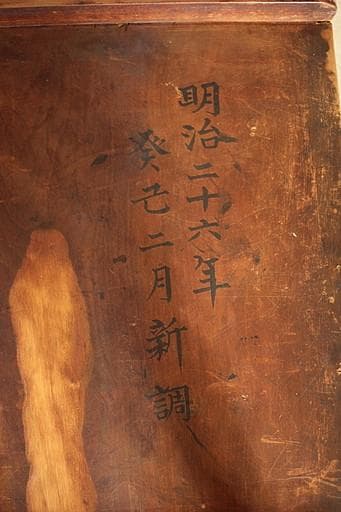 明治二十六年
癸巳二月新調